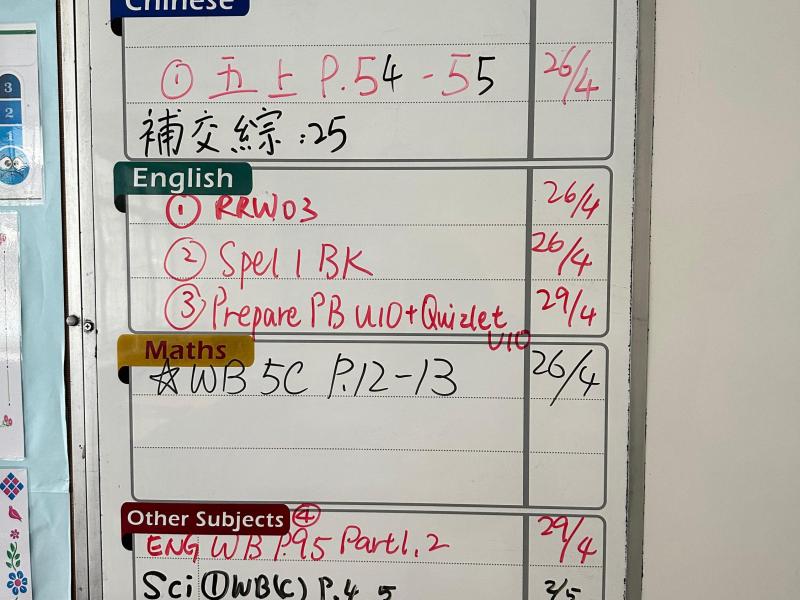 Chinese
① 五上 P.54 - 55 26/4
補交綜:25
English
① RRW03 26/4
② Spel 1 BK 26/4
③ Prepare PB U10+Quizlet 29/4
U10
Maths
☆ WB 5C P.12-13 26/4
Other Subjects ④
ENG WB P.95 Part1,2 29/4
Sci ①WB(C) P.4 5 2/5
3
2
1